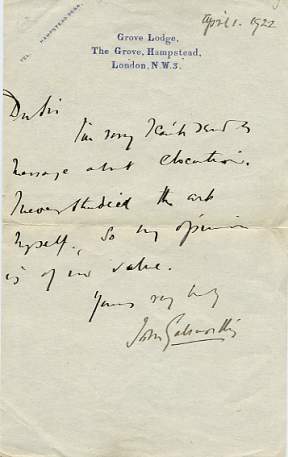 April 1. 1922
TEL. HAMPSTEAD
Grove Lodge,
The Grove, Hampstead,
London, N.W.3.
Dear Sir
I'm sorry I can't send a
message about elocution.
I never studied the art
myself, so my opinion
is of no value.
Yours very truly
John Galsworthy